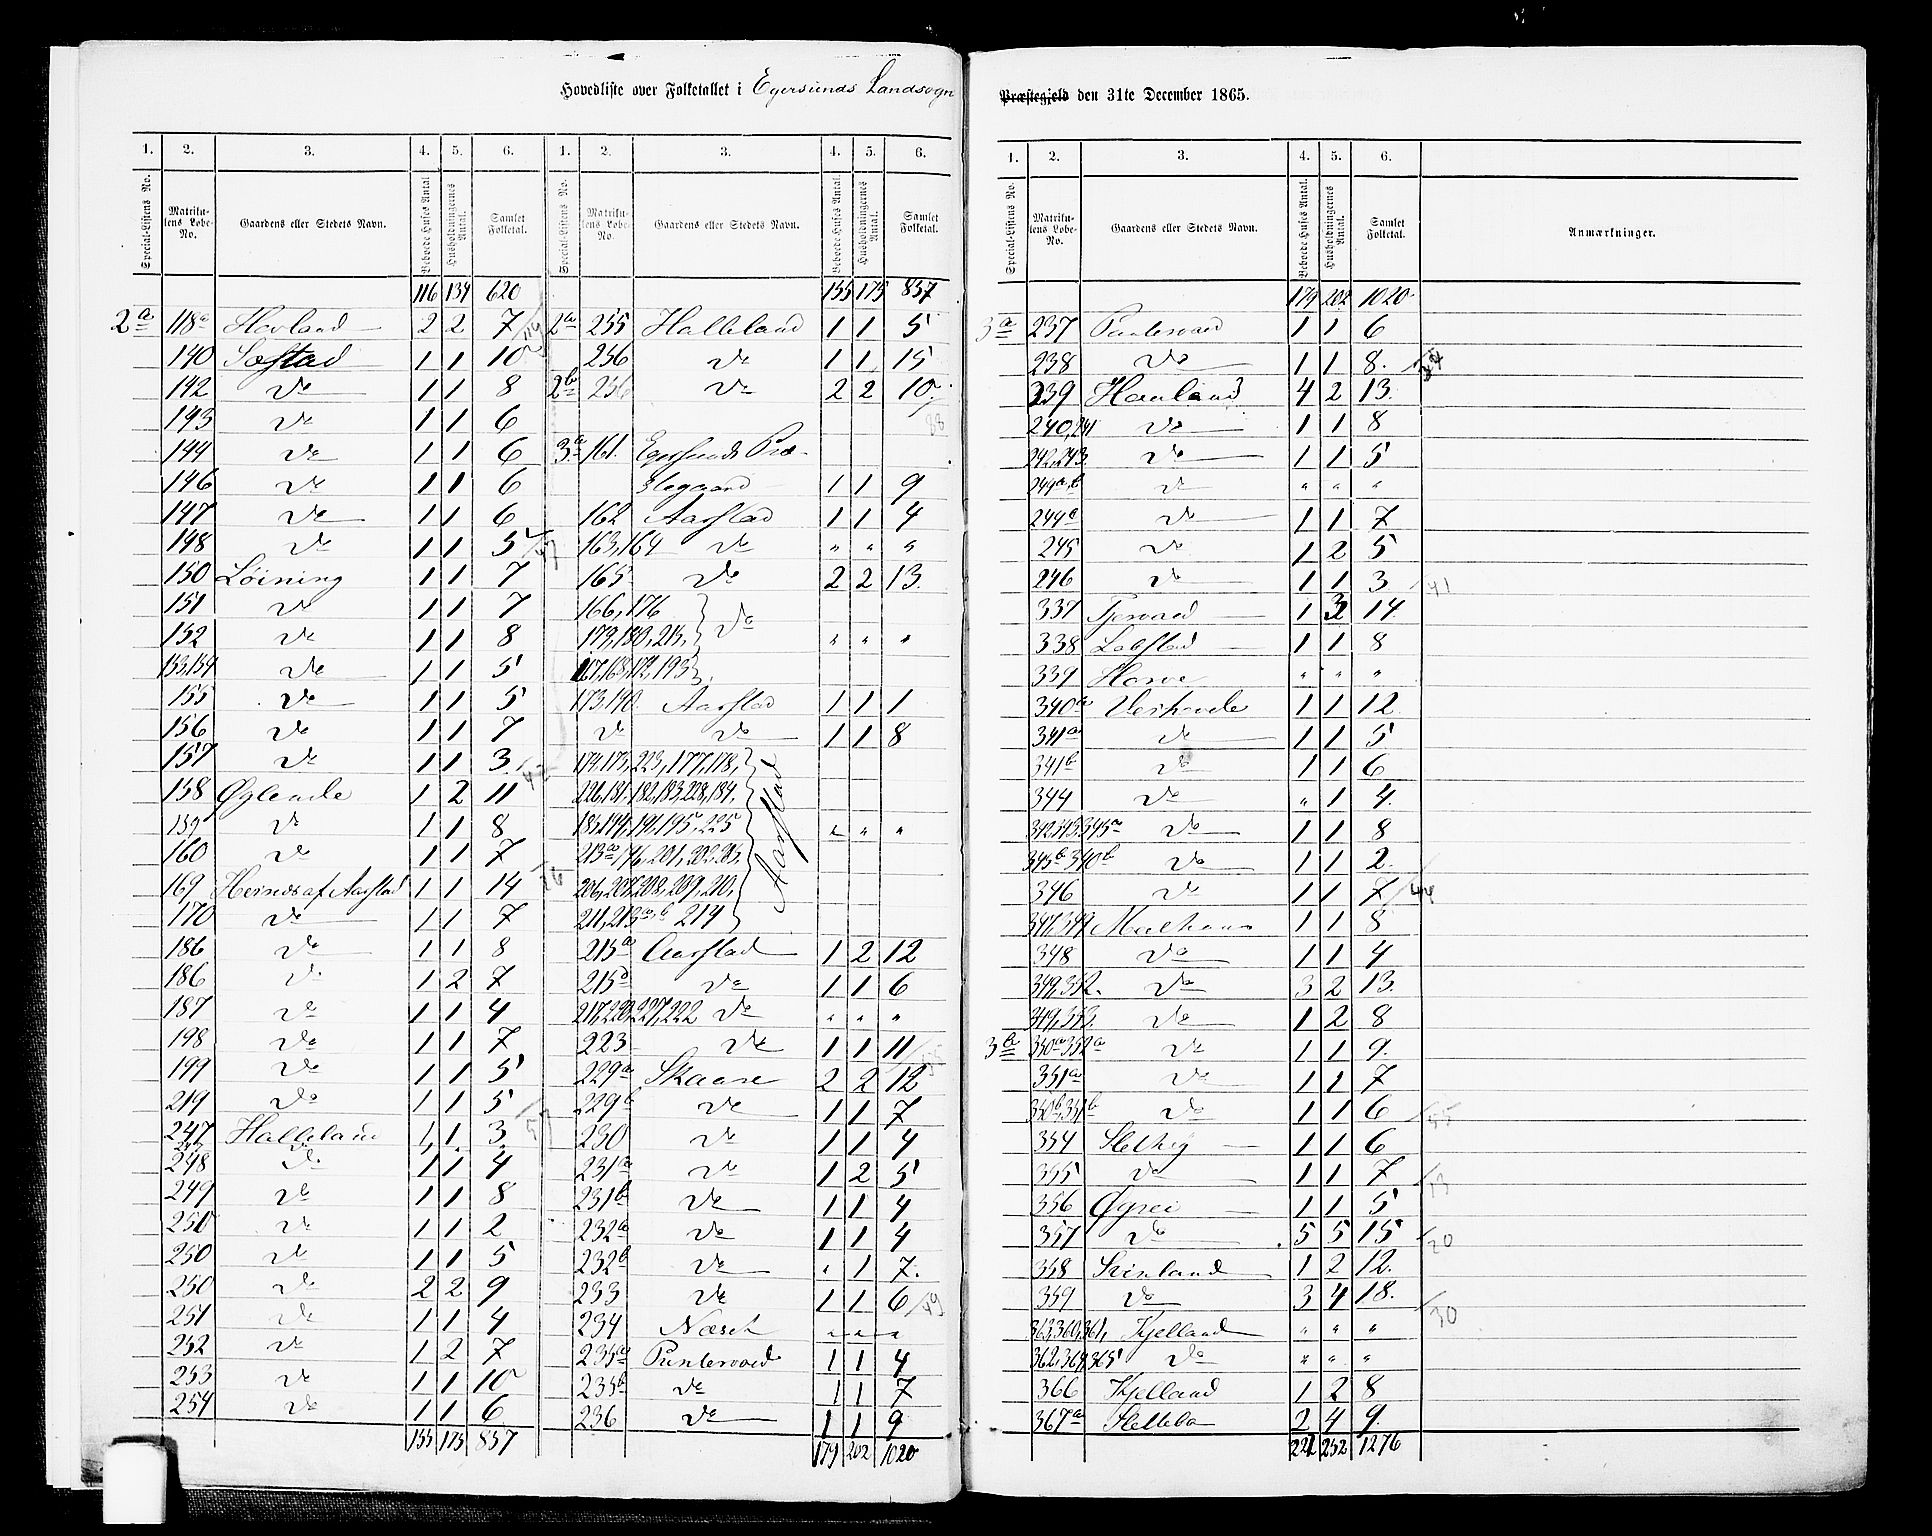 Hovedliste over Folketallet i Egersunds Landsogn
1. 2. 3. 4. 5. 6. 1. 2. 3. 4. 5. 6.
Special-Listens No. Matrikulens Løbe-No. Gaardens eller Stedets Navn. Beboede Huses Antal Husholdningernes Antal. Samlet Folketal. Special-Listens No. Matrikulens Løbe-No. Gaardens eller Stedets Navn. Beboede Huses Antal. Husholdningernes Antal. Samlet Folketal.
116 134 620
2a 118a Hovland 2 2 7
140 Sæstad 1 1 10
142 do 1 1 8
143 do 1 1 6
144 do 1 1 6
146 do 1 1 6
147 do 1 1 6
148 do 1 1 5
150 Löining 1 1 7
151 do 1 1 7
152 do 1 1 8
153,154 do 1 1 5
155 do 1 1 5
156 do 1 1 7
157 do 1 1 3
158 Øglende 1 2 11
159 do 1 1 8
160 do 1 1 7
169 af Aarstad 1 1 14
170 do 1 1 7
186 do 1 1 8
186 do 1 2 7
187 do 1 1 4
198 do 1 1 7
199 do 1 1 5
219 do 1 1 5
247 Halleland 1 1 3
248 do 1 1 4
249 do 1 1 8
250 do 1 1 2
250 do 1 1 5
250 do 2 2 9
251 do 1 1 4
252 do 1 2 7
253 do 1 1 10
254 do 1 1 6
155 175 857
155 175 857
2a 255 Halleland 1 1 5
256 do 1 1 15
2b 256 do 2 2 10
3a 161. Egersunds Præ-
stegaard 1 1 9
162 Aarstad 1 1 4
163,164 do " " "
165 do 2 2 13.
166,176
179,180, do " " "
193
173,190. Aarstad 1 1 1
do do 1 1 8
223,177,178,
226,181,182,183,228,184.
191,195,225 Aarstad " " "
206,207,208,209,210,
211,213a,b 214
215a Aarstad 1 2 12
215b do 1 1 6
222 do " " "
223 do 1 1 11
229a Skaare 2 2 12
229b do 1 1 7
230 do 1 1 4
231a do 1 2 5
231b do 1 1 4
232a do 1 1 4
232b do " 1 7.
233 do 1 1 6
234 Næset " " "
235a Puntervold 1 1 4
235b do 1 1 7
236 do 1 1 9
179 202 1020
Præstegjeld den 31te December 1865.
1. 2. 3. 4. 5. 6.
Special-Listens No. Matrikulens Løbe-No. Gaardens eller Stedets Navn. Beboede Huses Antal. Husholdningernes Antal. Samlet Folketal. Anmærkninger.
179 202 1020
3a 237 Puntervold 1 1 6
238 do 1 1 8. 34
239 Havland 4 2 13.
240,241 do 1 1 8
242,243. do 1 1 5
244a,b do " " "
do 1 1 7
245 do 1 2 5
246 do 1 1 3 41
337 1 3 14.
338 1 1 8
339 " " "
340a 1 1 12.
341a do 1 1 5
341b do 1 1 6
344 do " 1 4.
342,343.345a do 1 1 8
do 1 1 2.
346 do 1 1 7 44
1 1 8
348 do 1 1 4
349,352. do 3 2 13.
349,353. do 1 2 8
3b 350a352a do 1 1 9.
351a do 1 1 7
350b,351b do 1 1 6 55
354 1 1 6
355 do 1 1 7 13
356 Øgrei 1 1 5
357 do 5 5 15 20
358 1 2 12.
359 do 3 4 18. 30
363,360,361, Kjelland " " "
362,364,365 do " " "
366 Kjelland 1 2 8
367a 2 4 9.
221 252 1276